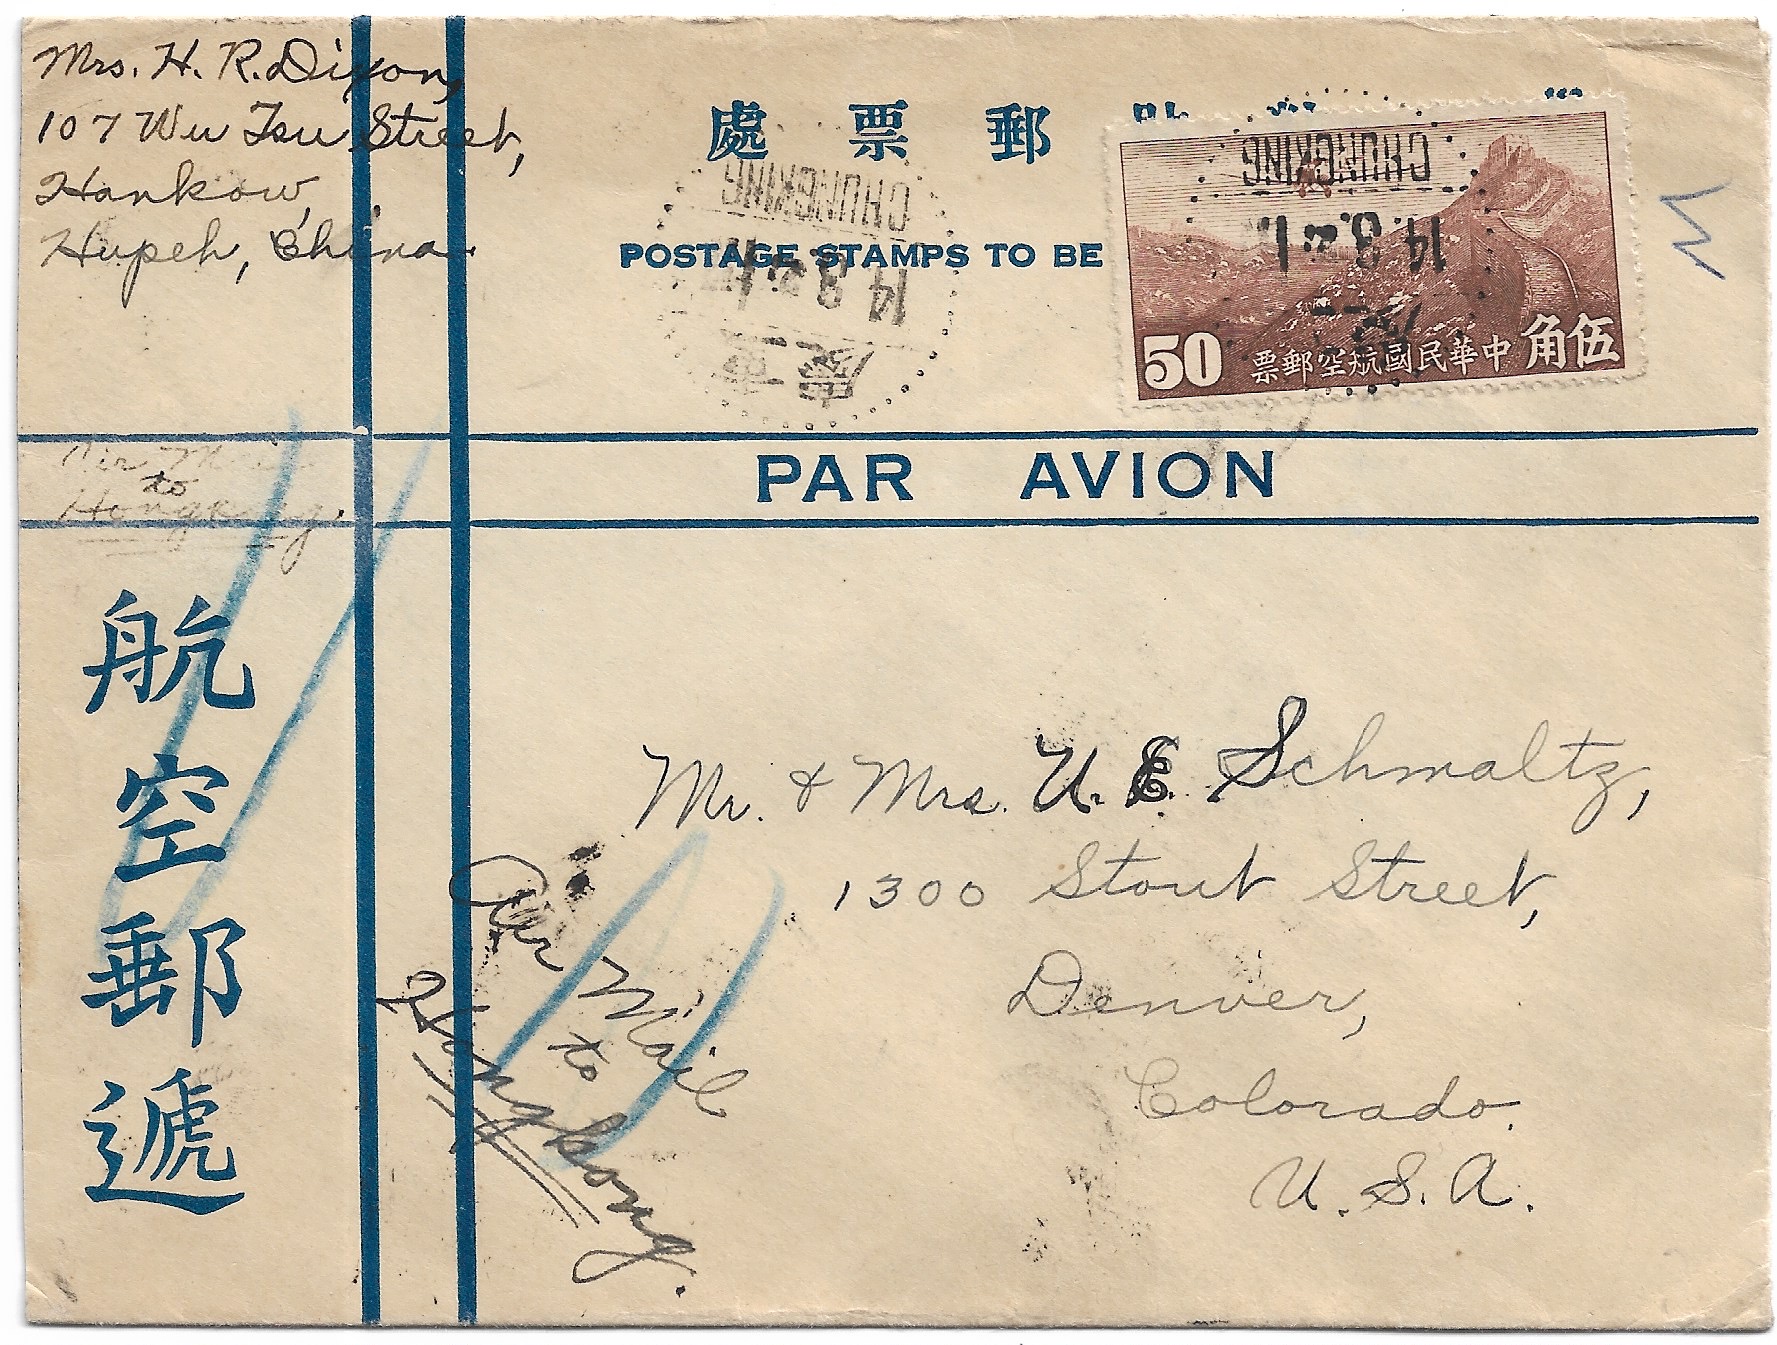 Mrs. H. R. Dixon,
107 Wu Tsu Street,
Hankow,
Hupeh, China.
處票郵
POSTAGE STAMPS TO BE
CHUNGKING
14.8.21
重慶
CHUNGKING
14.8.21
50 票郵空航國民華中 角伍
Air Mail
to
Hongkong.
PAR AVION
航空郵遞
Mr. & Mrs. U. E. Schmaltz,
1300 Stout Street,
Denver,
Colorado.
U. S. A.
Air Mail
to
Hongkong.